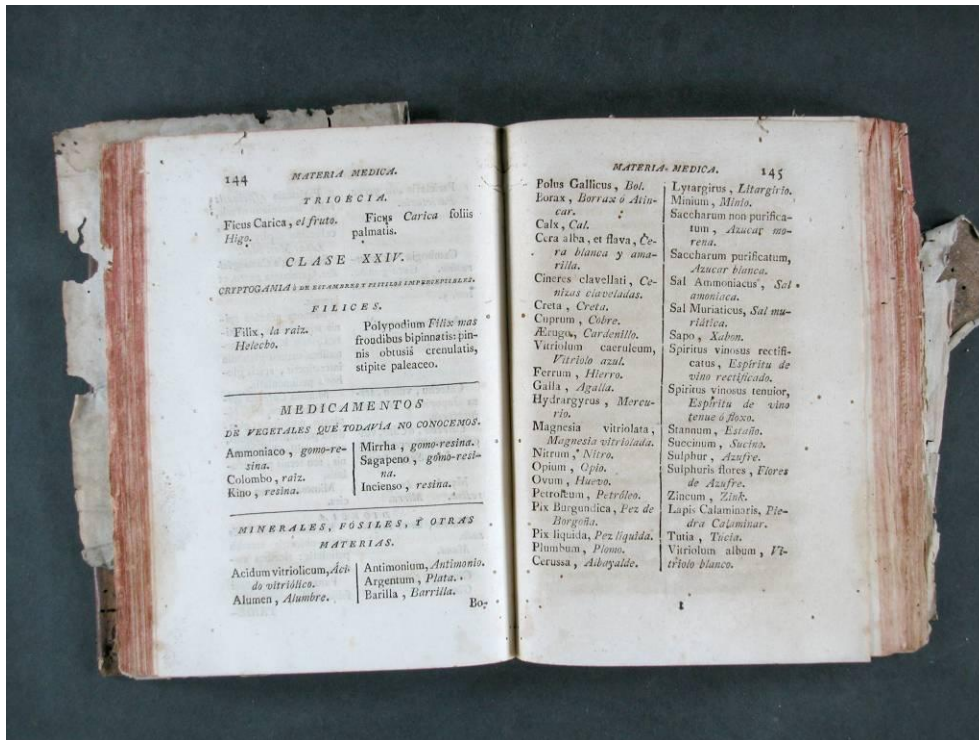 144 MATERIA MEDICA.
TRIOECIA.
Ficus Carica, el fruto.
Higo.
Ficus Carica foliis
palmatis.
CLASE XXIV.
CRYPTOGAMIA ò DE ESTAMBRES Y PISTILOS IMPERCEPTIBLES.
FILICES.
Filix, la raiz.
Helecho.
Polypodium Filix mas
frondibus bipinnatis: pin-
nis obtusis crenulatis,
stipite paleaceo.
MEDICAMENTOS
DE VEGETALES QUE TODAVÍA NO CONOCEMOS.
Ammoniaco, gomo-re-
sina.
Colombo, raiz.
Kino, resina.
Mirrha, gomo-resina.
Sagapeno, gomo-resi-
na.
Incienso, resina.
MINERALES, FÓSILES, Y OTRAS
MATERIAS.
Acidum vitriolicum, Áci-
do vitriólico.
Alumen, Alumbre.
Antimonium, Antimonio.
Argentum, Plata.
Barilla, Barrilla.
Bo-
MATERIA MEDICA. 145
Bolus Gallicus, Bol.
Borax, Borrax ó Atin-
car.
Calx, Cal.
Cera alba, et flava, Ce-
ra blanca y ama-
rilla.
Cineres clavellati, Ce-
nizas claveladas.
Creta, Creta.
Cuprum, Cobre.
Ærugo, Cardenillo.
Vitriolum caeruleum,
Vitriolo azul.
Ferrum, Hierro.
Galla, Agalla.
Hydrargyrus, Mercu-
rio.
Magnesia vitriolata,
Magnesia vitriolada.
Nitrum, Nitro.
Opium, Opio.
Ovum, Huevo.
Petroleum, Petróleo.
Pix Burgundica, Pez de
Borgoña.
Pix liquida, Pez líquida.
Plumbum, Plomo.
Cerussa, Albayalde.
Lytargirus, Litargirio.
Minium, Minio.
Saccharum non purifica-
tum, Azucar mo-
rena.
Saccharum purificatum,
Azucar blanca.
Sal Ammoniacus, Sal
amoniaca.
Sal Muriaticus, Sal mu-
riática.
Sapo, Xabon.
Spiritus vinosus rectifi-
catus, Espíritu de
vino rectificado.
Spiritus vinosus tenuior,
Espíritu de vino
tenue ó floxo.
Stannum, Estaño.
Succinum, Sucino.
Sulphur, Azufre.
Sulphuris flores, Flores
de Azufre.
Zincum, Zink.
Lapis Calaminaris, Pie-
dra Calaminar.
Tutia, Tucia.
Vitriolum album, Vi-
triolo blanco.